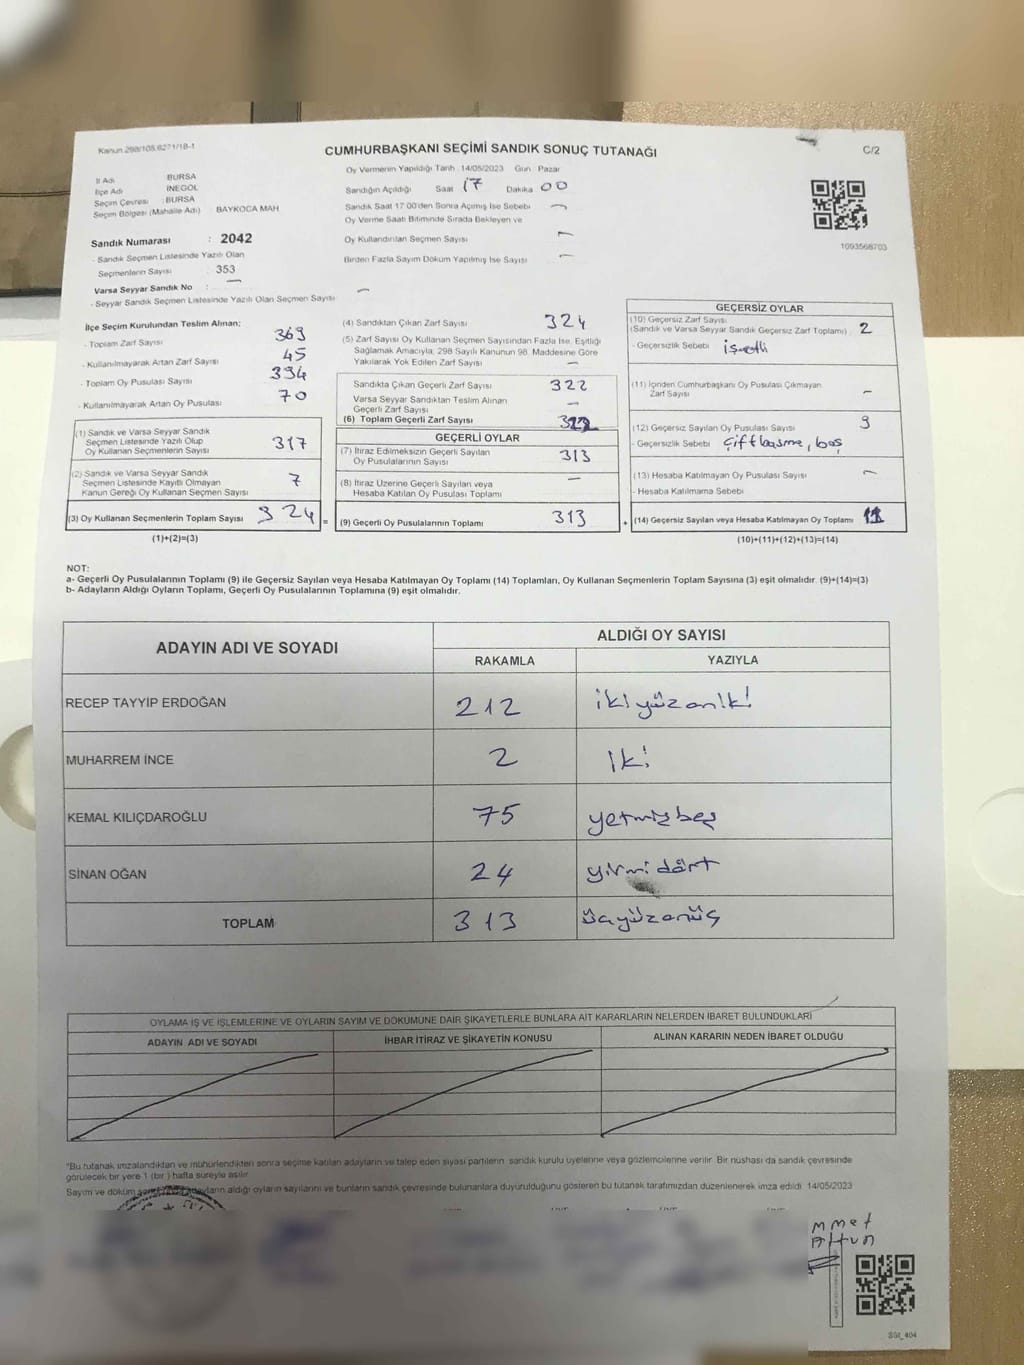 Kanun 298/105,6271/18-1
CUMHURBAŞKANI SEÇİMİ SANDIK SONUÇ TUTANAĞI
C/2
İl Adı BURSA
İlçe Adı İNEGÖL
Seçim Çevresi : BURSA
Seçim Bölgesi (Mahalle Adı) BAYKOCA MAH
Sandık Numarası : 2042
- Sandık Seçmen Listesinde Yazılı Olan
Seçmenlerin Sayısı 353
Varsa Seyyar Sandık No : —
- Seyyar Sandık Seçmen Listesinde Yazılı Olan Seçmen Sayısı —
Oy Vermenin Yapıldığı Tarih 14/05/2023 Gün Pazar
Sandığın Açıldığı Saat 17 Dakika 00
Sandık Saat 17:00'den Sonra Açımış İse Sebebi —
Oy Verme Saati Bitiminde Sırada Bekleyen ve
Oy Kullandırılan Seçmen Sayısı —
Birden Fazla Sayım Döküm Yapılmış İse Sayısı —
1093568703
İlçe Seçim Kurulundan Teslim Alınan;
- Toplam Zarf Sayısı 369
- Kullanılmayarak Artan Zarf Sayısı 45
- Toplam Oy Pusulası Sayısı 394
- Kullanılmayarak Artan Oy Pusulası 70
(1) Sandık ve Varsa Seyyar Sandık
Seçmen Listesinde Yazılı Olup
Oy Kullanan Seçmenlerin Sayısı 317
(2) Sandık ve Varsa Seyyar Sandık
Seçmen Listesinde Kayıtlı Olmayan
Kanun Gereği Oy Kullanan Seçmen Sayısı 7
(3) Oy Kullanan Seçmenlerin Toplam Sayısı 324
(1)+(2)=(3)
(4) Sandıktan Çıkan Zarf Sayısı 324
(5) Zarf Sayısı Oy Kullanan Seçmen Sayısından Fazla İse, Eşitliği
Sağlamak Amacıyla; 298 Sayılı Kanunun 98. Maddesine Göre
Yakılarak Yok Edilen Zarf Sayısı —
Sandıkta Çıkan Geçerli Zarf Sayısı 322
Varsa Seyyar Sandıktan Teslim Alınan
Geçerli Zarf Sayısı —
(6) Toplam Geçerli Zarf Sayısı 322
GEÇERLİ OYLAR
(7) İtiraz Edilmeksizin Geçerli Sayılan
Oy Pusulalarının Sayısı 313
(8) İtiraz Üzerine Geçerli Sayılan veya
Hesaba Katılan Oy Pusulası Toplamı —
= (9) Geçerli Oy Pusulalarının Toplamı 313
GEÇERSİZ OYLAR
(10) Geçersiz Zarf Sayısı
(Sandık ve Varsa Seyyar Sandık Geçersiz Zarf Toplamı) 2
- Geçersizlik Sebebi işaretli
(11) İçinden Cumhurbaşkanı Oy Pusulası Çıkmayan
Zarf Sayısı —
(12) Geçersiz Sayılan Oy Pusulası Sayısı 9
- Geçersizlik Sebebi çift basme, boş
(13) Hesaba Katılmayan Oy Pusulası Sayısı —
- Hesaba Katılmama Sebebi
+ (14) Geçersiz Sayılan veya Hesaba Katılmayan Oy Toplamı 11
(10)+(11)+(12)+(13)=(14)
NOT:
a- Geçerli Oy Pusulalarının Toplamı (9) ile Geçersiz Sayılan veya Hesaba Katılmayan Oy Toplamı (14) Toplamları, Oy Kullanan Seçmenlerin Toplam Sayısına (3) eşit olmalıdır. (9)+(14)=(3)
b- Adayların Aldığı Oyların Toplamı, Geçerli Oy Pusulalarının Toplamına (9) eşit olmalıdır.
ADAYIN ADI VE SOYADI ALDIĞI OY SAYISI
RAKAMLA YAZIYLA
RECEP TAYYİP ERDOĞAN 212 ikiyüzoniki
MUHARREM İNCE 2 iki
KEMAL KILIÇDAROĞLU 75 yetmişbeş
SİNAN OĞAN 24 yirmidört
TOPLAM 313 üçyüzonüç
OYLAMA İŞ VE İŞLEMLERİNE VE OYLARIN SAYIM VE DÖKÜMÜNE DAİR ŞİKAYETLERLE BUNLARA AİT KARARLARIN NELERDEN İBARET BULUNDUKLARI
ADAYIN ADI VE SOYADI İHBAR İTİRAZ VE ŞİKAYETİN KONUSU ALINAN KARARIN NEDEN İBARET OLDUĞU
*Bu tutanak imzalandıktan ve mühürlendikten sonra seçime katılan adayların ve talep eden siyasi partilerin sandık kurulu üyelerine veya gözlemcilerine verilir. Bir nüshası da sandık çevresinde
görülecek bir yere 1 (bir) hafta süreyle asılır.
Sayım ve döküm adayların aldığı oyların sayılarını ve bunların sandık çevresinde bulunanlara duyurulduğunu gösteren bu tutanak tarafımızdan düzenlenerek imza edildi. 14/05/2023
mmet
Altun
SGI_404